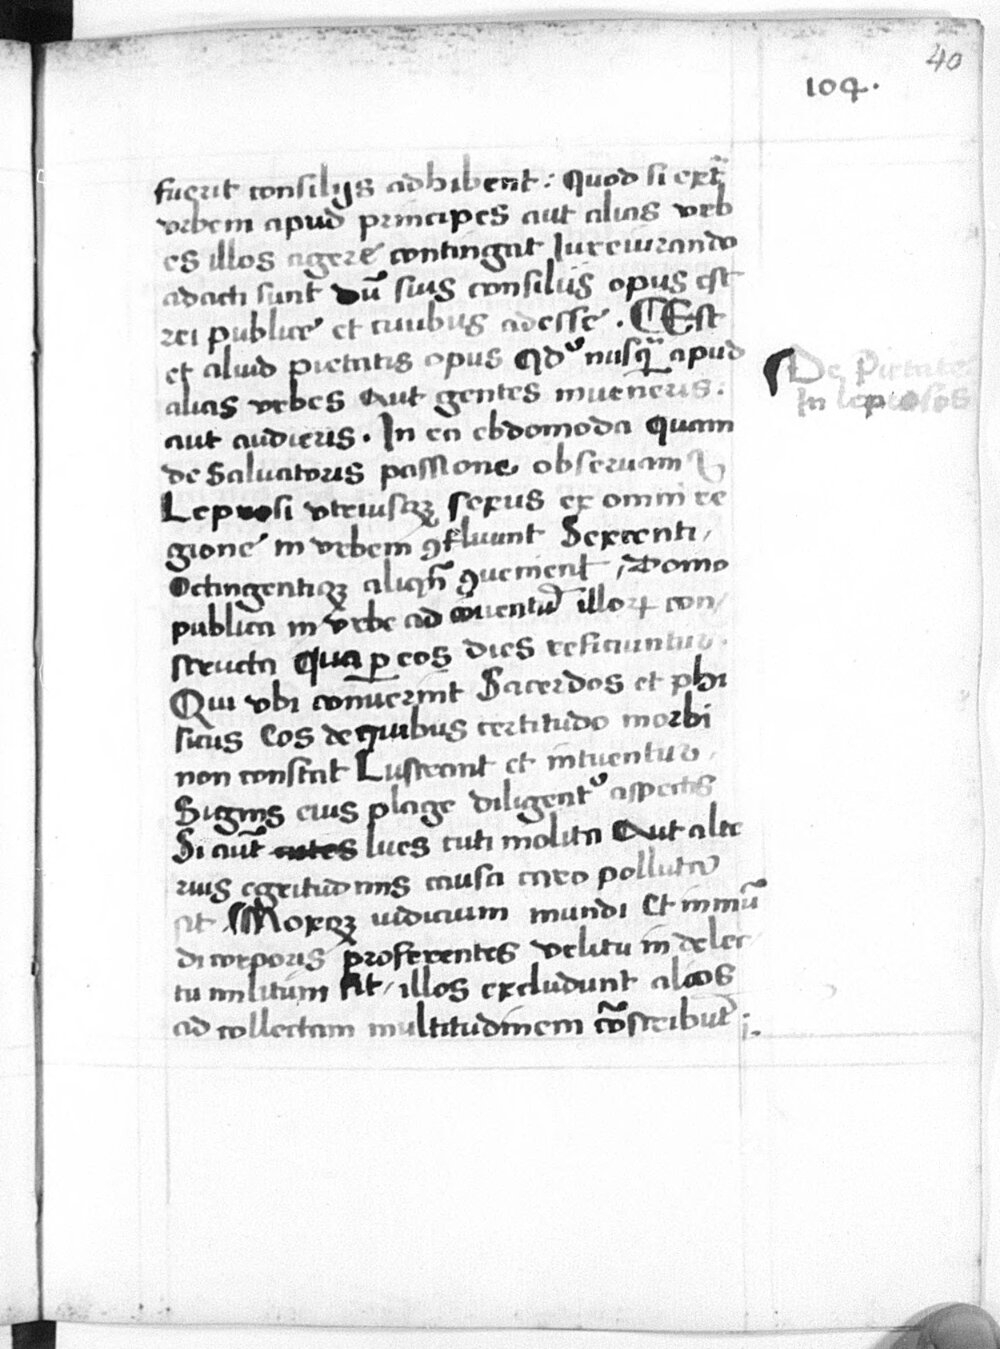 40
104.
fuerit consilijs adhibent: Quod si extr̃
vrbem apud principes aut alias vrb
es illos agere contingat Iureiurando
adacti sunt dũ suis consiliis opus est
rei publice et ciuibus adesse. Est
et aliud pietatis opus Qd nusq̃ apud
alias vrbes Aut gentes inueneris:
aut audieris. In ea ebdomoda Quam
de Saluatoris passione obseruam
Leprosi vtriusqꝫ sexus ex omni re
gione in vrbem ꝯfluunt Sexcenti /
Octingentiqꝫ aliqñ ꝯuenient / Domo
publica in vrbe ad cõuentũ illoꝝ con/
structa Qua ꝑ eos dies reficiuntur.
Qui vbi conuerint Sacerdos et phi
sicus Eos de quibus certitudo morbi
non constat Lustrant et intuentur,
Signis eius plage diligent aspectis
Si aut̃ lues cuti molita Aut alte
rius egritudinis causa caro polluta
sit Moxqꝫ iudicium mundi Et inmũ
di corporis proferentes velitu in delec
tu militum sit / illos excludunt alios
ad collectam multitudinem cõscribut̃
De Pietate
In leprosos